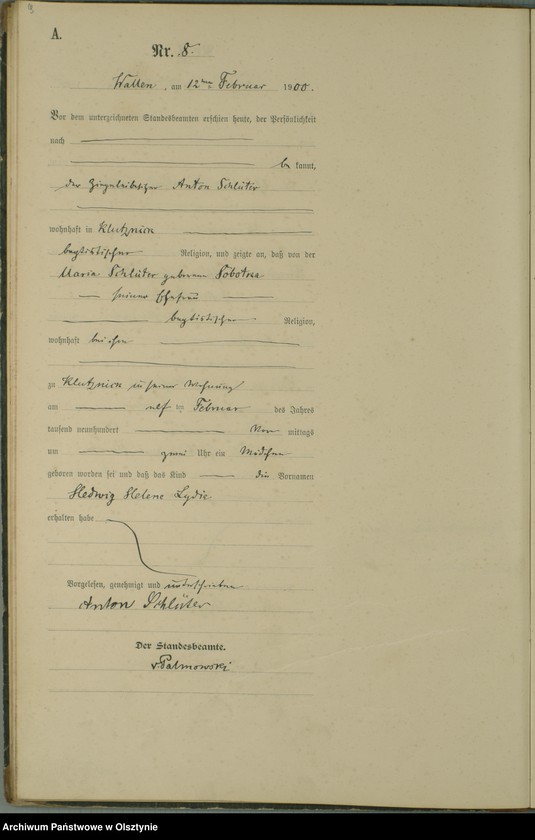 9
A.
Nr. 8.
Wallen, am 12ten Februar 1900.
Vor dem unterzeichneten Standesbeamten erschien heute, der Persönlichkeit
nach
be kannt,
der Ziegeleibesitzer Anton Schlüter
wohnhaft in Klutznick
baptistischer Religion, und zeigte an, daß von der
Maria Schlüter geborene Sobotna
seiner Ehefrau
baptistischer Religion,
wohnhaft bei ihm
zu Klutznick in seiner Wohnung
am elf ten Februar des Jahres
tausend neunhundert Vor mittags
um zwei Uhr ein Mädchen
geboren worden sei und daß das Kind die Vornamen
Hedwig Helene Lydie
erhalten habe
Vorgelesen, genehmigt und unterschrieben
Anton Schlüter
Der Standesbeamte.
v. Palmowski
Archiwum Państwowe w Olsztynie